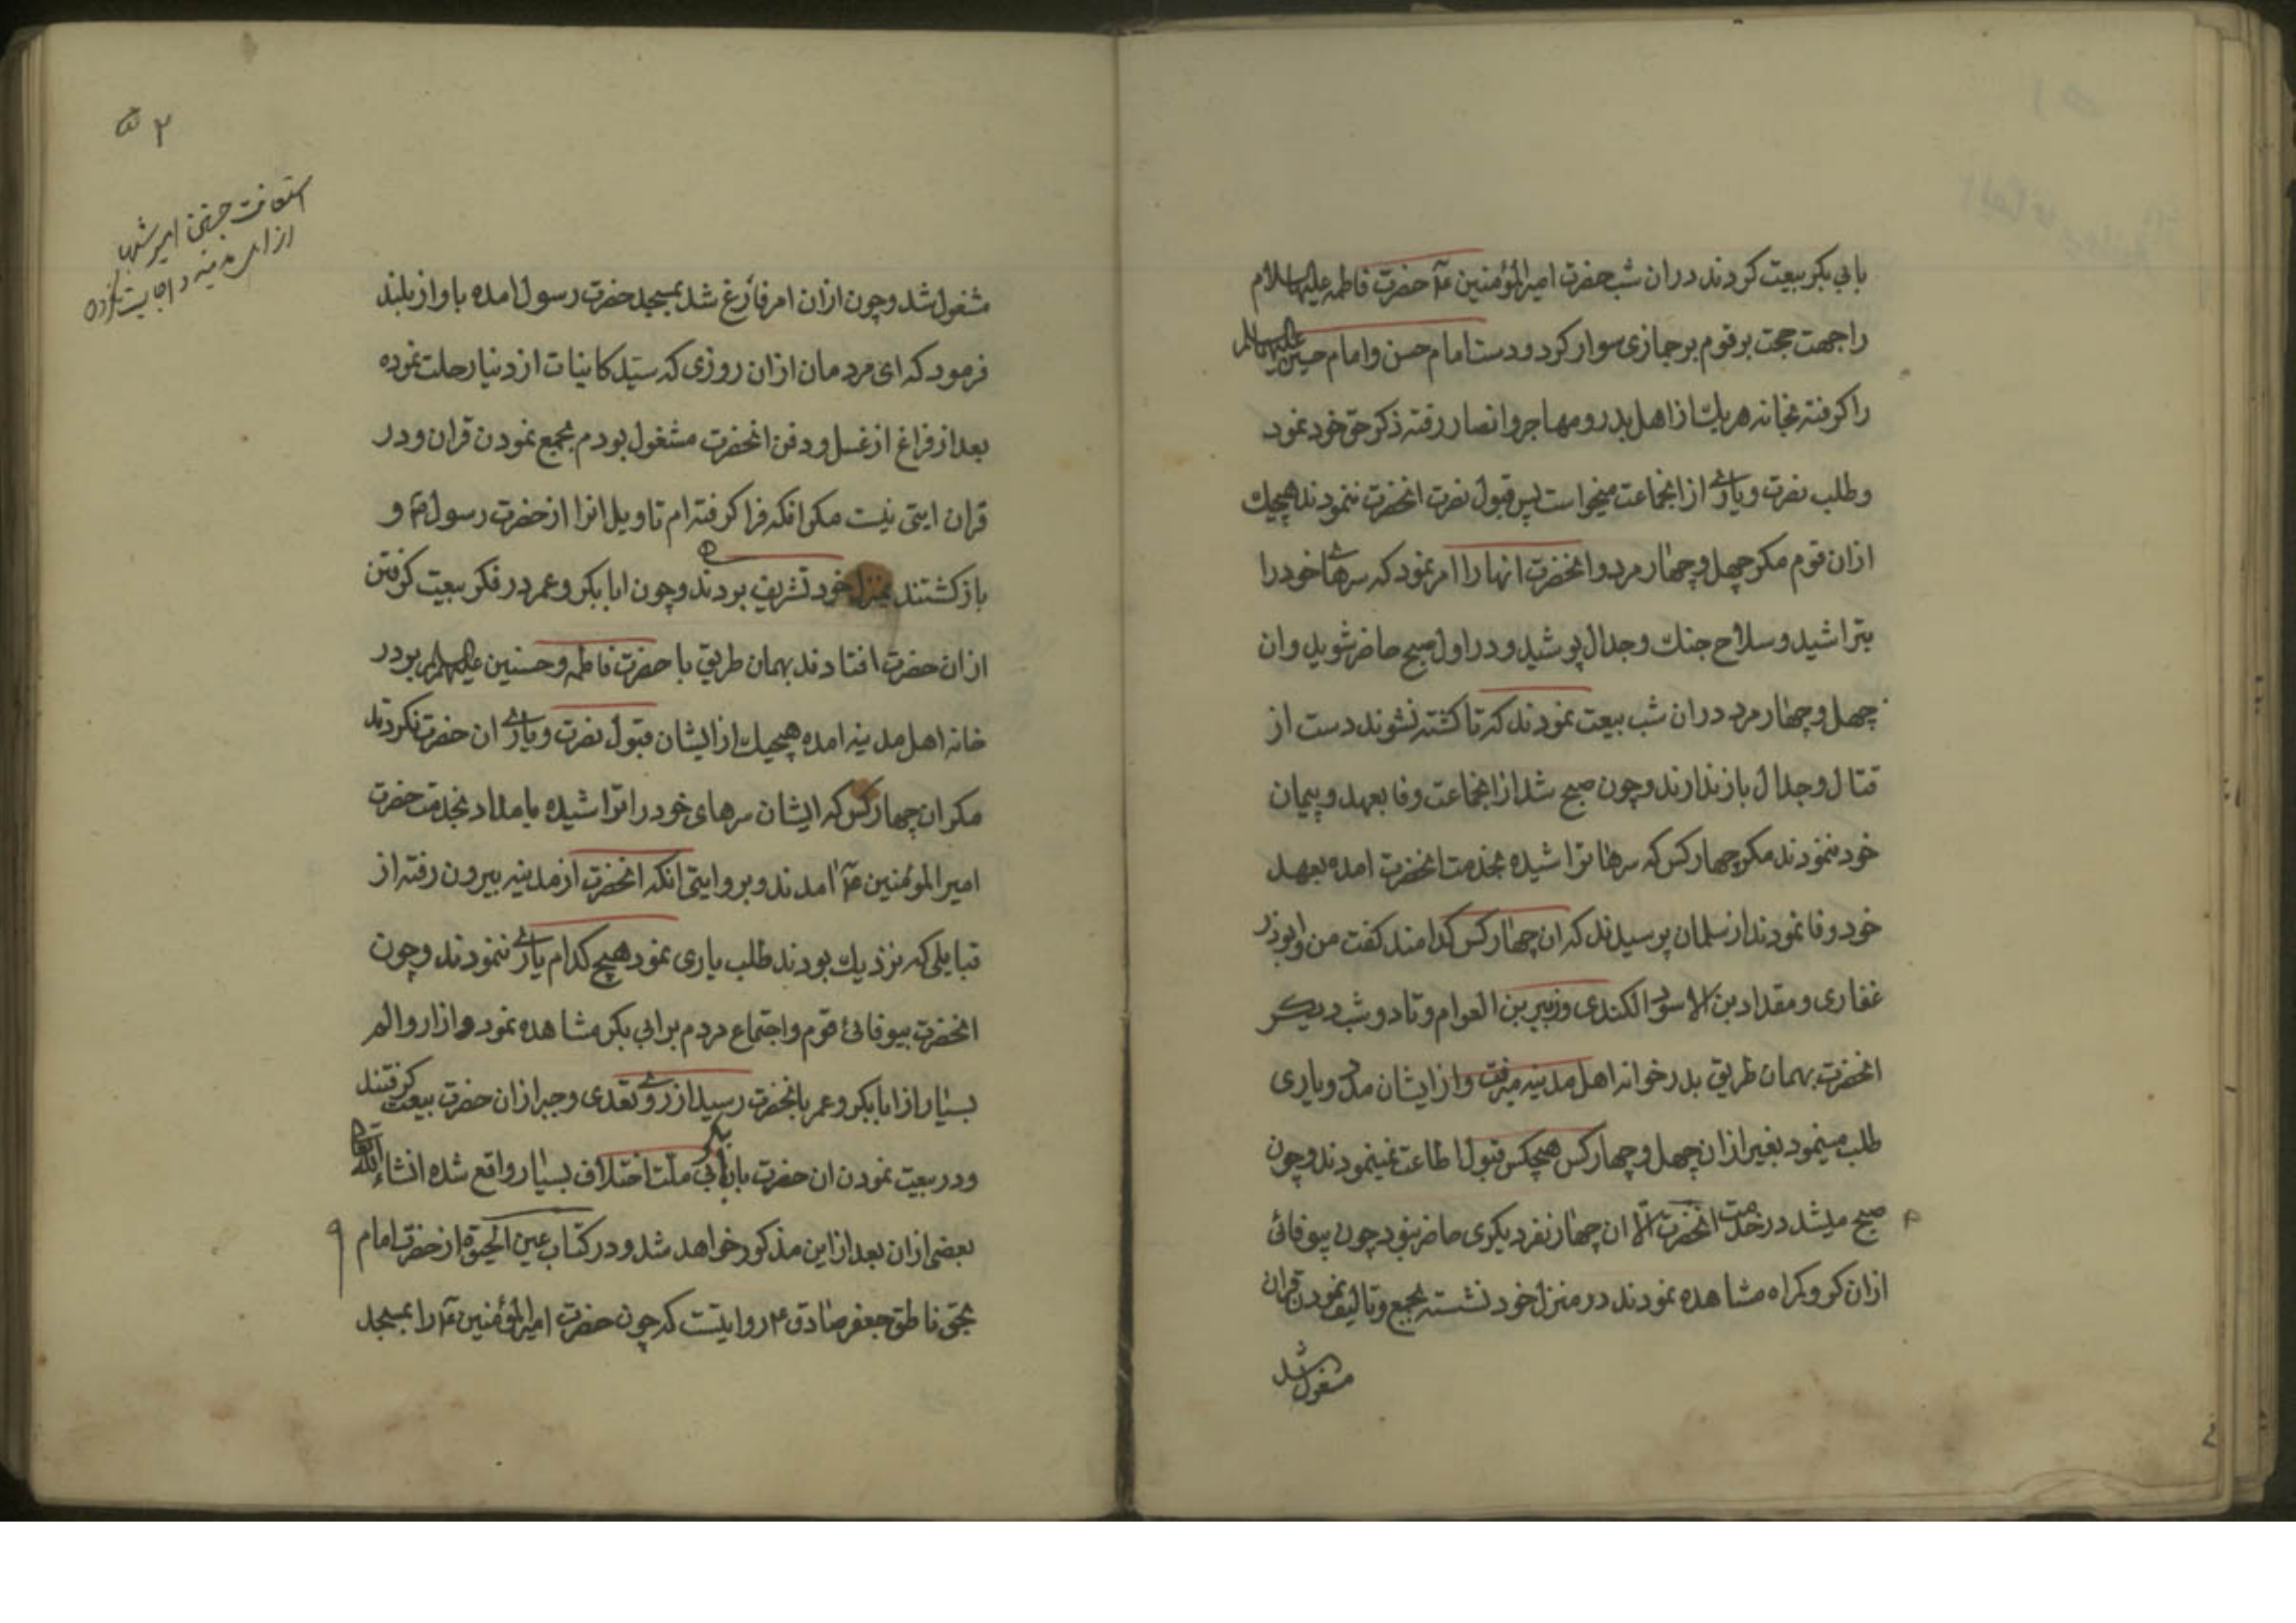 بابی بکر بیعت کردند دران شب حضرت امیرالمؤمنین ع حضرت فاطمه علیهاالسلام
را جهت حجت بر قوم بر حمازی سوار کرد و دست امام حسن و امام حسین علیهماالسلام
را کرفته بخانه هریك از اهل بدر و مهاجر و انصار رفته ذکر حق خود نمود
و طلب نصرت و یاری از انجماعت میخواست پس قبول نصرت انحضرت ننمودند هیچیك
ازان قوم مکر چهل و چهار مرد و انحضرت انها را امر نمود که سرهای خود را
بتراشید و سلاح جنك و جدال پوشید و در اول صبح حاضر شوید و ان
چهل و چهار مرد دران شب بیعت نمودند که تا کشته نشوند دست از
قتال و جدال باز ندارند و چون صبح شد از انجماعت وفا بعهد و پیمان
خود ننمودند مکر چهار کس که سرها تراشیده بخدمت انحضرت امده بعهد
خود وفا نمودند از سلمان پرسیدند که ان چهار کس کدامند کفت من و ابوذر
غفاری و مقداد بن الاسود الکندی و زبیر بن العوام و تا دو شب دیکر
انحضرت بهمان طریق بدر خوانه اهل مدینه میرفت و از ایشان مدد و یاری
طلب مینمود بغیر ازان چهل و چهار کس هیچکس قبول اطاعت نمینمودند و چون
صبح میشد در خدمت انحضرت الا ان چهار نفر دیکری حاضر نبود چون بیوفائی
ازان کروه کراه مشاهده نمودند در منزل خود نشسته بجمع و تالیف نمودن قران
مشغول شد
۲
استعانت جستن امیر شب
از اهل مدینه و اجابت نکردن
مشغول شد و چون ازان امر فارغ شد بمسجد حضرت رسول امده باواز بلند
فرمود که ای مردمان ازان روزی که سید کاینات از دنیا رحلت نموده
بعد از فراغ از غسل و دفن انحضرت مشغول بودم بجمع نمودن قران و در
قران ایتی نیست مکر انکه فرا کرفته ام تاویل انرا از حضرت رسول ص و
باز کشتند بمنزل خود تشریف بردند و چون ابابکر و عمر در فکر بیعت کرفتن
ازان حضرت افتادند بهمان طریق با حضرت فاطمه و حسنین علیهم السلام بدر
خانه اهل مدینه امده هیچیك از ایشان قبول نصرت و یاری ان حضرت نکردند
مکر ان چهار کس که ایشان سرهای خود را تراشیده بامداد بخدمت حضرت
امیرالمومنین ع امدند و بروایتی انکه انحضرت از مدینه بیرون رفته از
قبایلی که نزدیك بودند طلب یاری نمود هیچ کدام یاری ننمودند و چون
انحضرت بیوفائی قوم و اجتماع مردم بر ابی بکر مشاهده نمود و ازار و الم
بسیار از ابابکر و عمر بانحضرت رسید از روی تعدی و جبر ازان حضرت بیعت کرفتند
و در بیعت نمودن ان حضرت بابی بکر ملت اختلاف بسیار واقع شده انشاء الله
بعضی ازان بعد ازاین مذکور خواهد شد و در کتاب عین الحیوة از حضرت امام
بحق ناطق جعفر صادق ع روایتست که چون حضرت امیرالمؤمنین ع را بمسجد